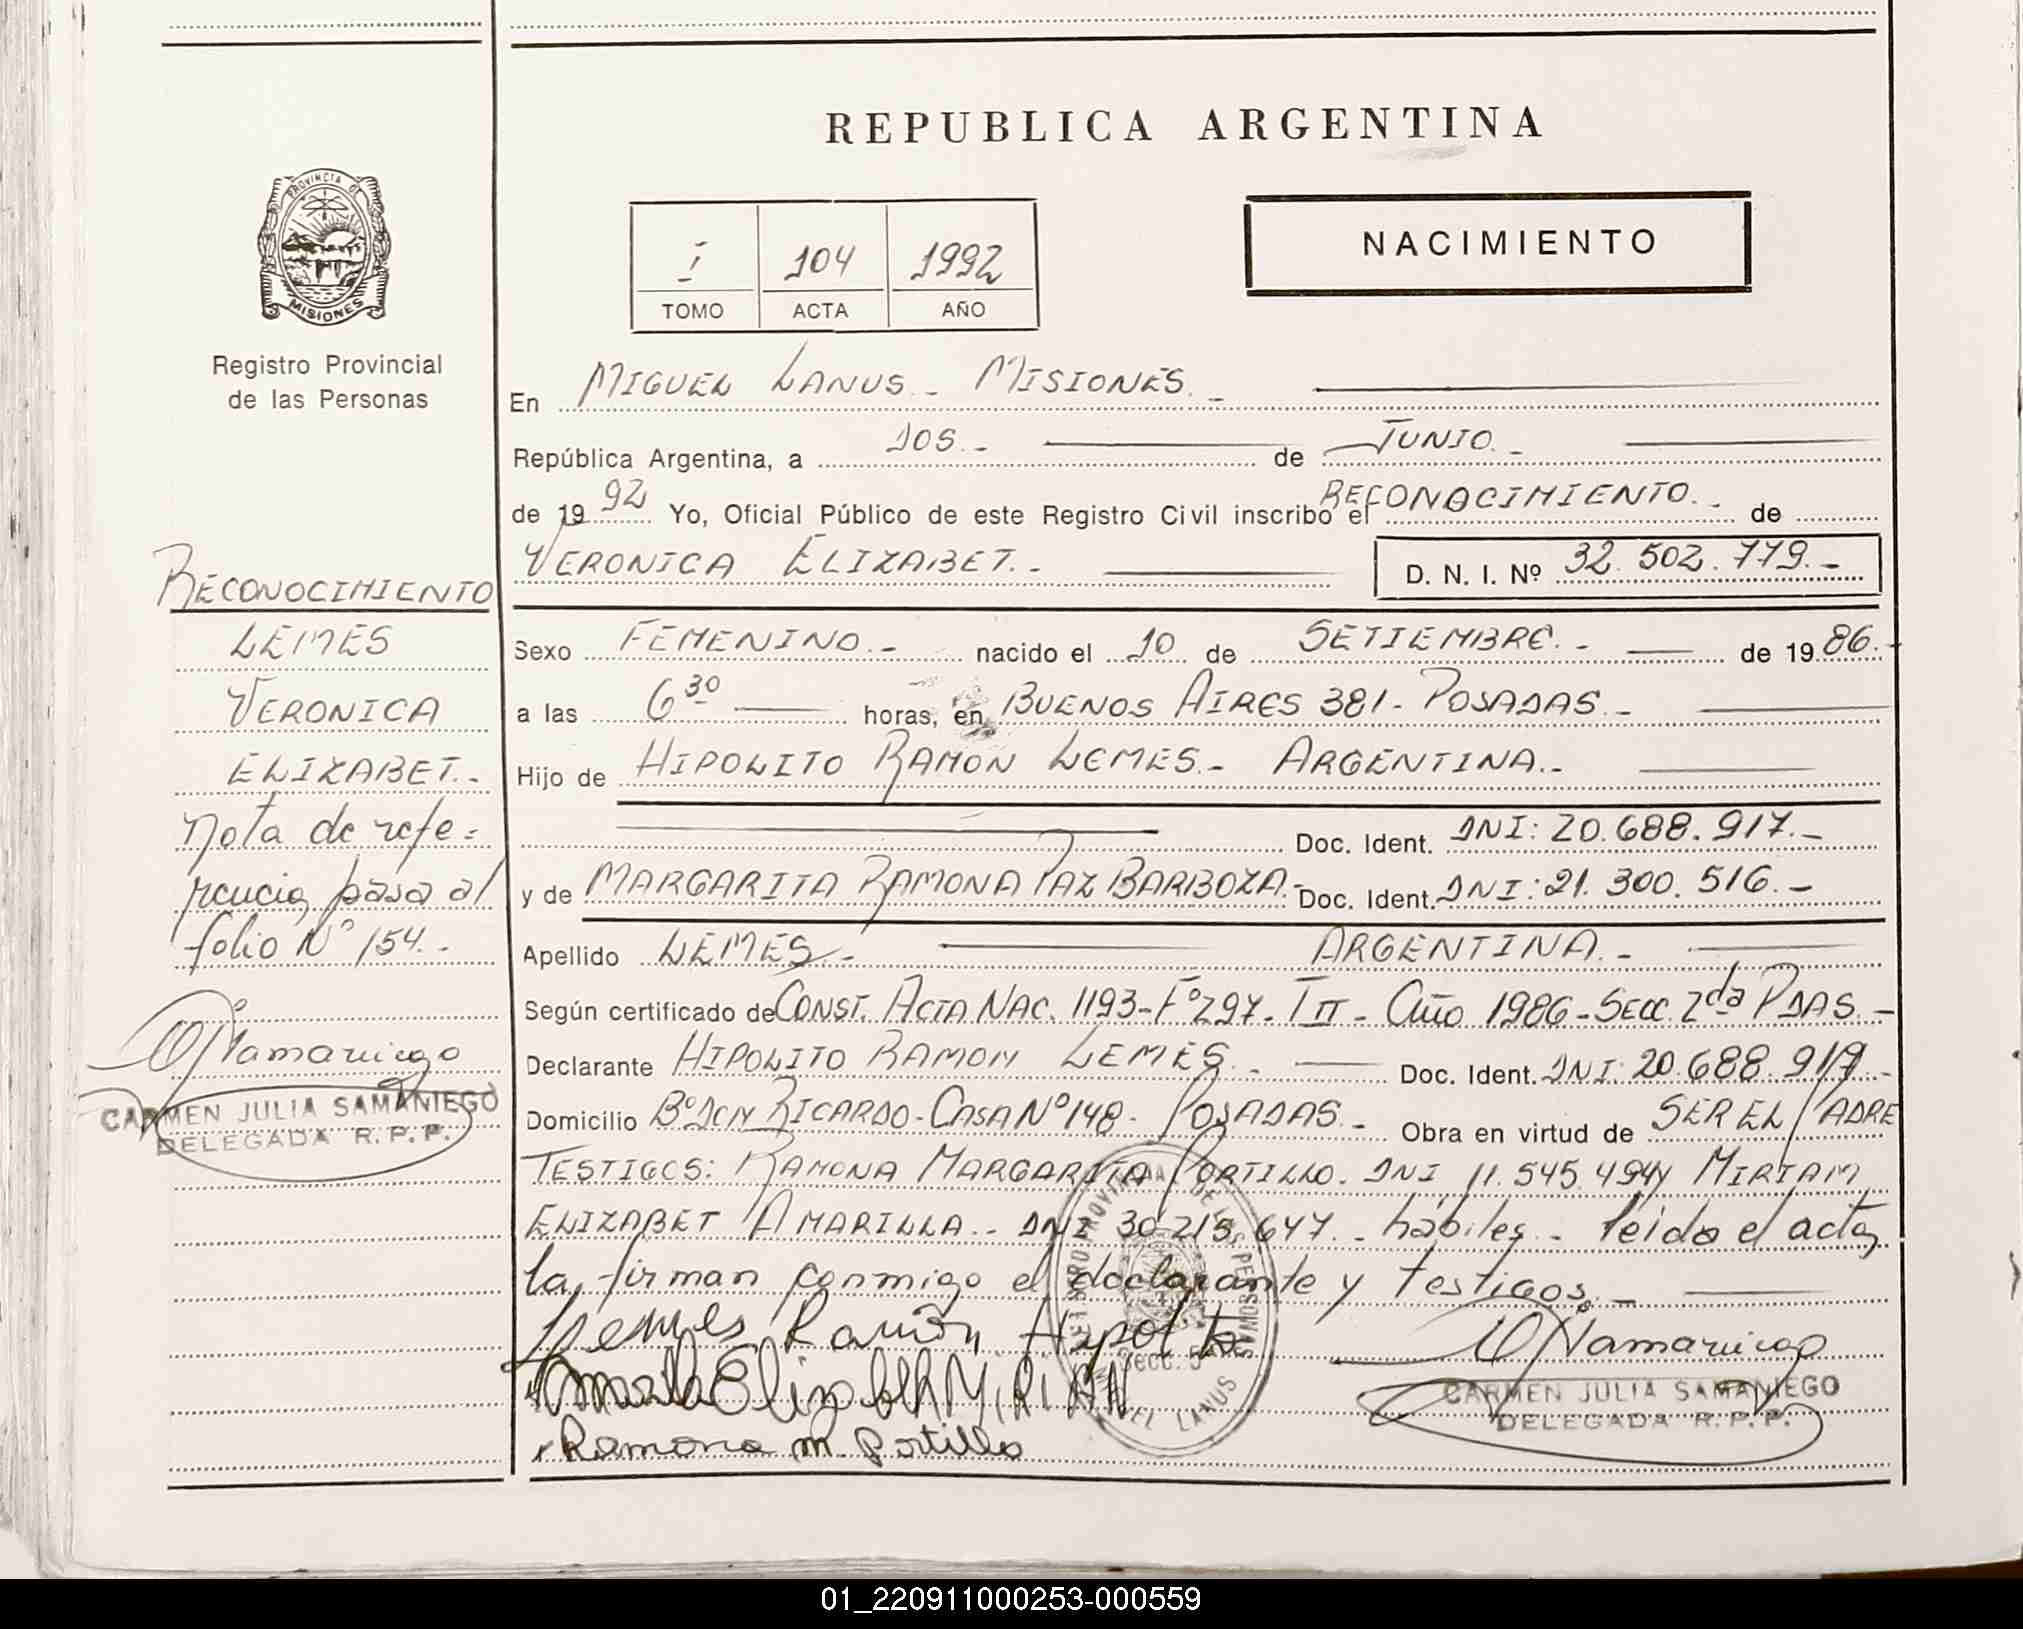 REPUBLICA ARGENTINA
PROVINCIA DE
MISIONES
Registro Provincial
de las Personas
I 104 1992
TOMO ACTA AÑO
NACIMIENTO
En MIGUEL LANUS - MISIONES. -
República Argentina, a DOS. - de JUNIO. -
de 1992 Yo, Oficial Público de este Registro Civil inscribo el RECONOCIMIENTO. - de
VERONICA ELIZABET. - D. N. I. Nº 32.502.779. -
RECONOCIMIENTO
LEMES
VERONICA
ELIZABET. -
Nota de refe=
rencia, pasa al
folio Nº 154. -
CARMEN JULIA SAMANIEGO
DELEGADA R. P. P.
Sexo FEMENINO. - nacido el 10 de SETIEMBRE. - de 1986. -
a las 6 30 horas, en BUENOS AIRES 381 - POSADAS. -
Hijo de HIPOLITO RAMON LEMES. - ARGENTINA. -
Doc. Ident. DNI: 20.688.917. -
y de MARGARITA RAMONA PAZ BARBOZA. - Doc. Ident. DNI: 21.300.516. -
Apellido LEMES. - ARGENTINA. -
Según certificado de CONST. ACTA NAC. 1193 - Fº 297 - T II - Año 1986 - SECC. 2da PDAS. -
Declarante HIPOLITO RAMON LEMES. - Doc. Ident. DNI: 20.688.917. -
Domicilio Bº DON RICARDO - CASA Nº 148 - POSADAS. - Obra en virtud de SER EL PADRE
TESTIGOS: RAMONA MARGARITA PORTILLO. DNI 11.545.494 y MIRIAM
ELIZABET AMARILLA. - DNI 30.215.647. - hábiles - leida el acta,
la firman conmigo el declarante y testigos. -
Lemes Ramón Hipolito
Amarilla Elizabeth MiRiAN
Ramona M Portillo
REGISTRO PROVINCIAL DE LAS PERSONAS
Secc. 5
MIGUEL LANUS
CARMEN JULIA SAMANIEGO
DELEGADA R. P. P.
01_220911000253-000559